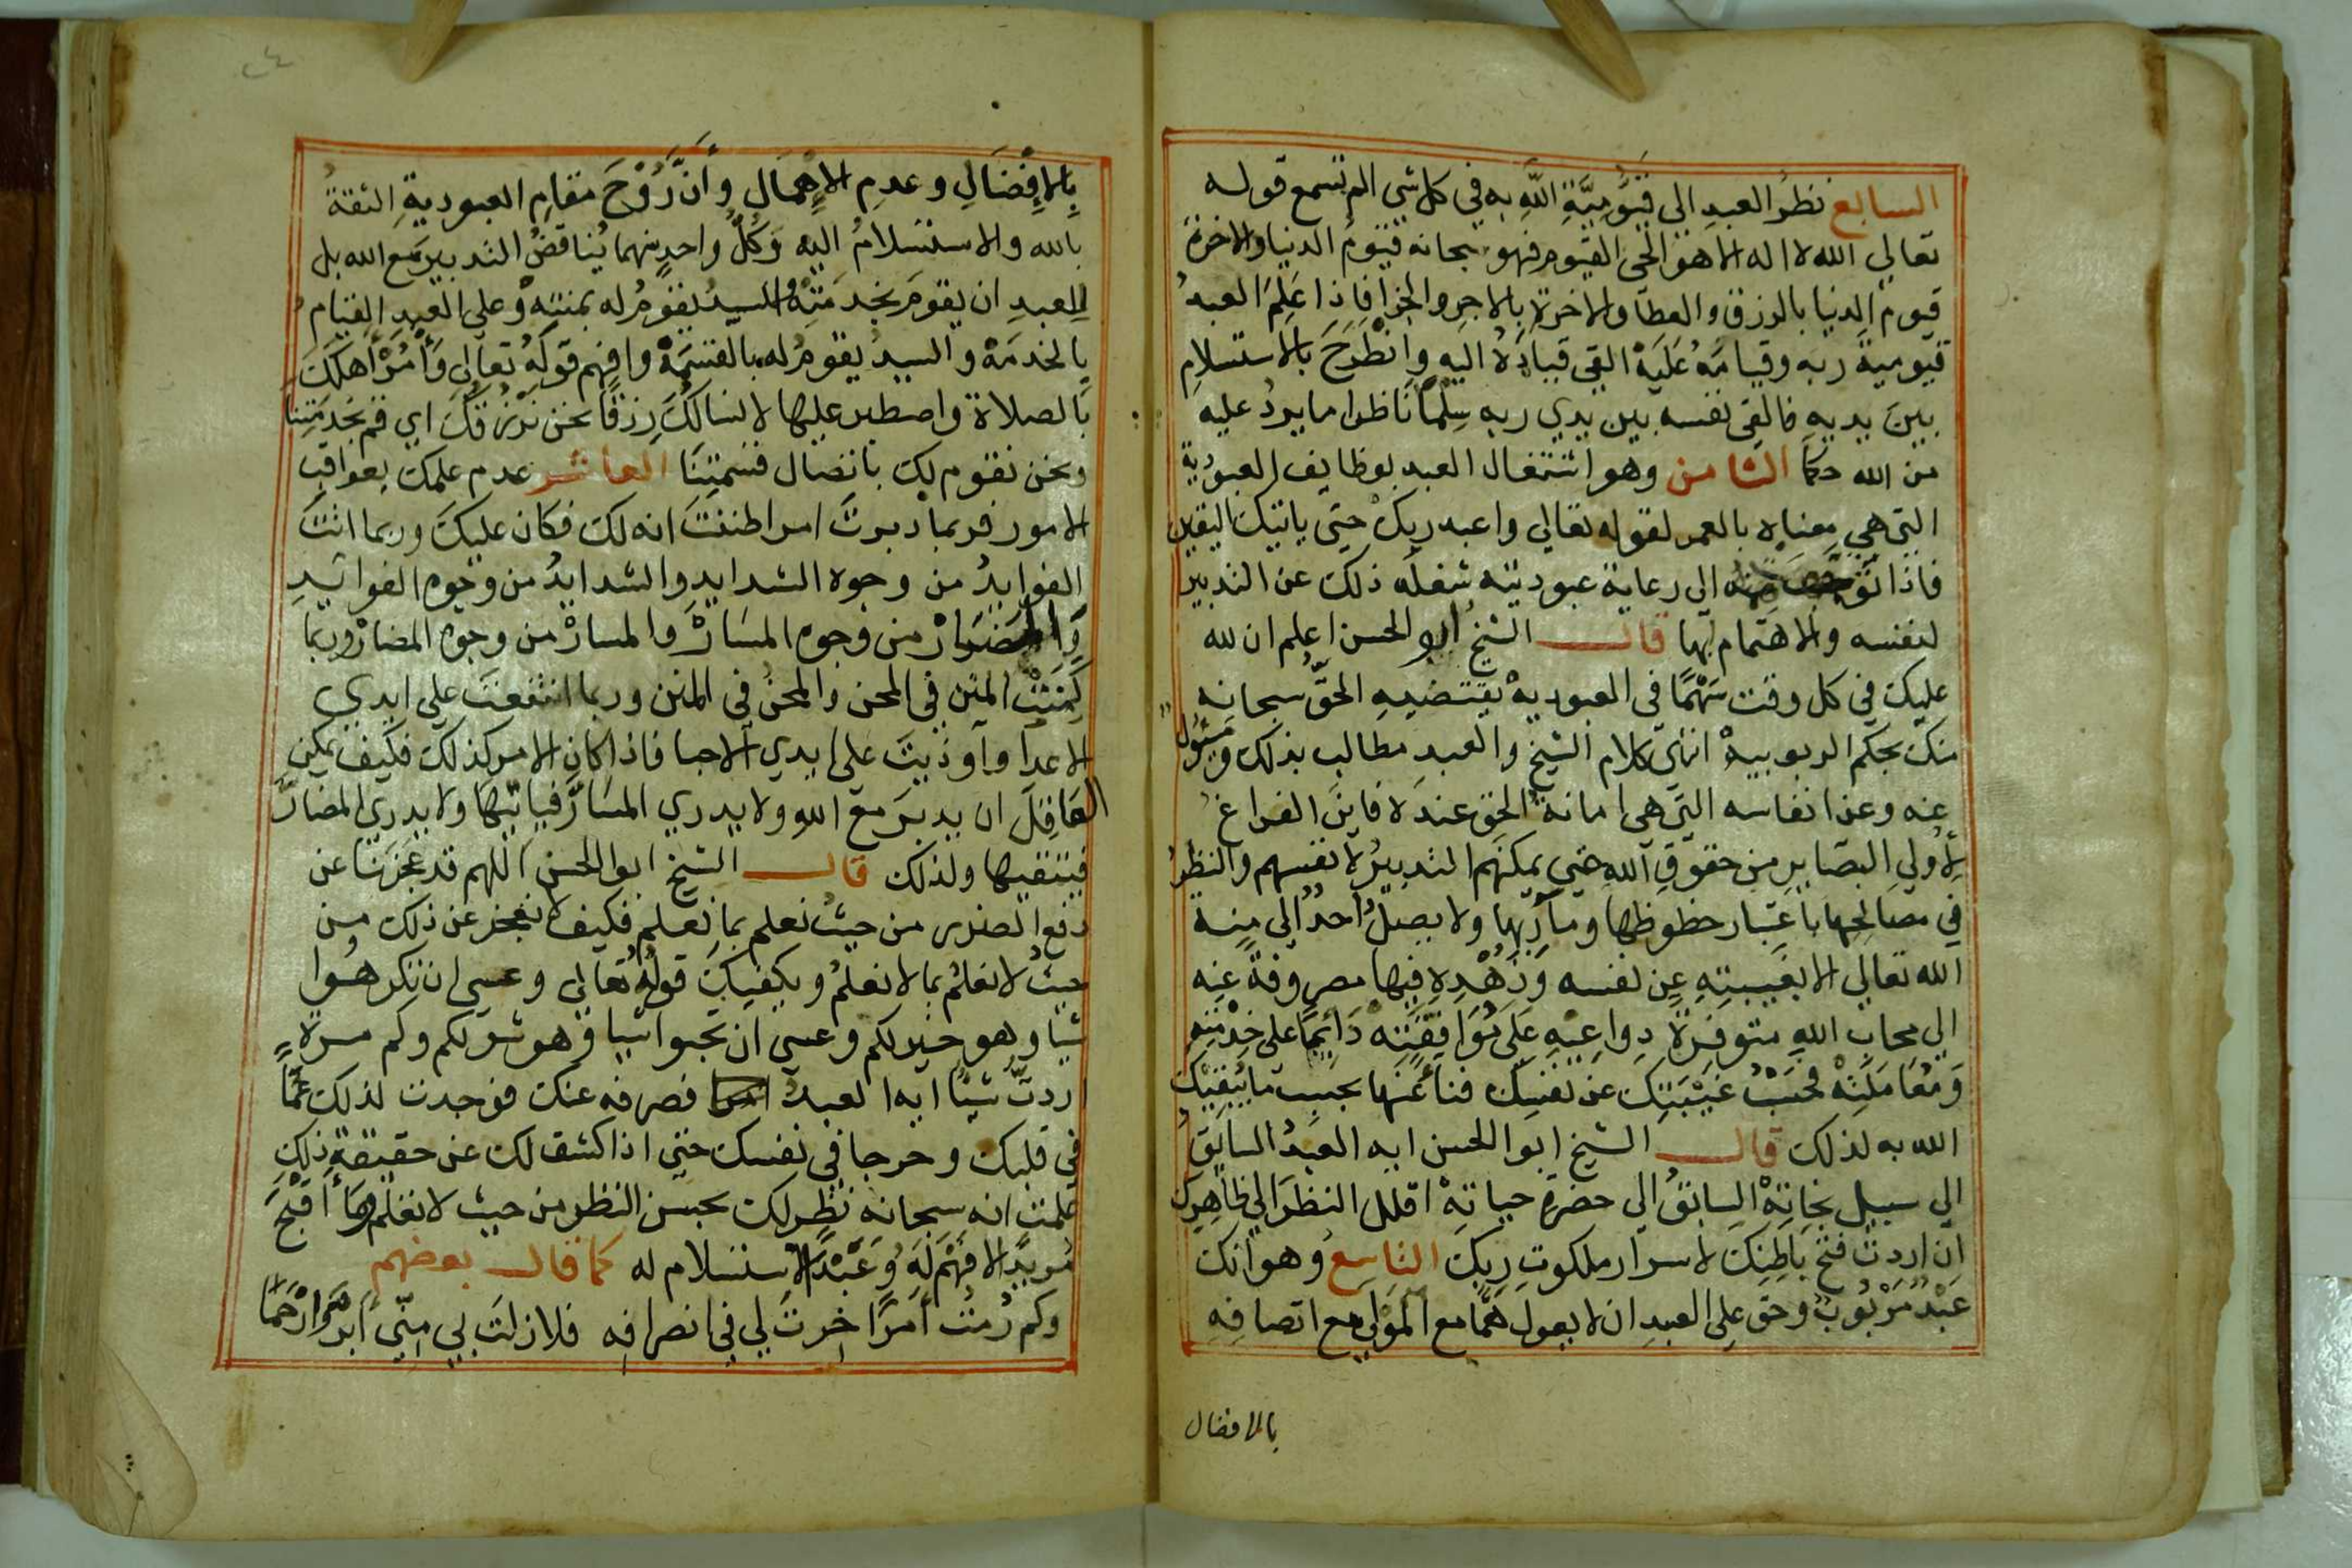 السابع نظرُ العبدِ الى قَيُّومِيَّةِ اللهِ به في كل شي الم تسمع قوله
تعالي الله لا اله الا هو الحي القيوم فهو سبحانه قيّومُ الدنيا والاخرة
قيومُ الدنيا بالرزق والعطآ والاخرةِ بالاجرِ والجزا فاذا عَلِمَ العبدُ
قيّوميةَ ربه وقيامَهُ عَلَيْه القي قيادَهُ اليه وانْطَرَحَ بالاستسلامِ
بينَ يديه فالقى نفسه بين يدي ربه سِلْمًا ناظرا ما يردُ عليه
من الله حكما الثامن وهو اشتغال العبد بوظايف العبوديّة
التي هي مغياه بالعمر لقوله تعالي واعبد ربك حتى ياتيك اليقين
فاذا توجهت همته الى رعاية عبوديته شغله ذلك عن التدبير
لنفسه والاهتمام لها قال الشيخُ ابو الحسن اعلم ان لله
عليك في كل وقت سَهْمًا في العبوديةْ يقتضيهِ الحقُّ سبحانه
منك بحكم الربوبيةْ انتهى كلام الشيخ والعبد مطالب بذلك ومَسْئول
عنه وعن انفاسه التي هي امانةُ الحق عنده فاين الفراغ
لأُولي البصايرِ من حقوقِ اللهِ حتي يمكنَهم التدبيرُ لانفسهم والنظرُ
في مصالحِها باعتبار حظوظِها ومآربِها ولا يصِلُ احدٌ الى مِنة
الله تعالي الا بغيبتِهِ عن نفسه وزهْدِهِ فيها مصروفةً عنه
الى محاب اللهِ متوفرةً دواعيه عَلَى مُوَافِقَتِهْ دَائِمًا على خِدْمتِهِ
وَمُعَامَلَتِهْ فحسَبْ غَيْبَتِكَ عن نفسِك فناءً عنها بحسب ما يُبقيْك
الله به لذلك قال الشيخ ابوا الحسن ايه العبدُ السابقُ
الى سبيل نجاتِهْ السابقُ الى حضرةِ حياتِهْ اقلل النظرَ الى ظاهِرِك
ان اردتَ فتحَ باطِنِكَ لاسرار ملكوتِ ربِك التاسع وهو انك
عَبْدٌ مَرْبُوبٌ وحق على العبدِ ان لا يعول همًّا مع المَوْلى مع اتصافِهِ
بالافضال
بِالإِفْضَالِ وعدمِ الإِهْمَالِ وأنَّ رُوْحَ مقامِ العبوديةِ الثقةُ
بالله والاستسلامُ اليه وَكلُّ واحدٍ منهما يُناقضُ التدبيرَ مع الله بل
للعبدِ ان يقومَ بخدمَتِهْ والسيدُ يقومُ له بمنتِهْ وعلى العبدِ القيامُ
بالخدمَةْ والسيدُ يقومُ له بالقسْمَةْ وافهم قولَهُ تعالى وَأْمُرْ أَهلَكَ
بالصلاةِ واصطبر عليها لا نسالُكَ رزقًا نحن نَرْزُقُكَ اي قم بخدمَتِنا
ونحن نقوم لك بانضال قسمتِنَا العاشر عدم علمك بعواقب
الامور فربما دبرتَ امرا ظننتَ انه لك فكان عليكَ وربما اتتَ
الفوايدُ من وجوه الشدايدِ والشدايدُ من وجوه الفوائِدِ
وَالمضَارْ من وجوه المسَارْ والمسارْ من وجوه المضارْ وربما
كَمَنَتْ المنَن في المحن والمحنُ في المنن وربما انتفعتَ على ايدي
الاعدا وأوذيتَ على ايدي الاحبا فاذا كان الامر كذلك فكيف يمكن
العَاقلَ ان يدبرَ مع اللهِ ولا يدري المسَارَّ فياتيها ولا يدري المضارَّ
فيتقيها ولذلك قال الشيخ ابوا الحسن اللهم قد عَجَزنا عن
دفع الضرر من حيثُ نعلم بما نعلم فكيف لا نعجز عن ذلك من
حيثُ لا نعلمُ بما لا نعلمُ ويكفيكَ قولُهُ تعالى وعسى ان تكرهُوا
شيا وهو خير لكم وعسى ان تحبوا شيا وهو شر لكم وكم مرةٍ
اردتَ شيئًا ايه العبدُ فصرفه عنك فوجدت لذلك غمًّا
في قلبك وحرجا في نفسك حتى اذا كشف لك عن حقيقةِ ذلك
علمتَ انه سبحانه نظر لك بحسن النظر من حيث لا تعلم وما أقبَحَ
مُريدًا لا فهْمَ لَهُ وعَبْدًا لا استسلام له كما قال بعضهم
وكم رُمْتُ أمرًا خِرتَ لي في انصرافِه فلا زلتَ بي مِنّي ابرَّ وارْحَمَا